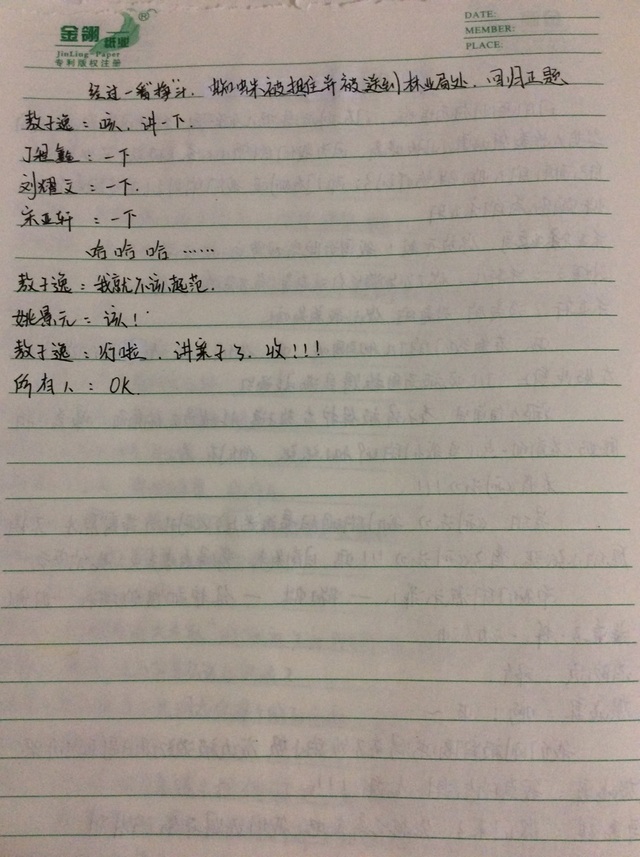 金翎纸业®
JinLing-Paper
专利版权注册
DATE:
MEMBER:
PLACE:
经过一番挣斗，蜘蛛被抓住并被送到林业局处，回归正题
敖子逸：咳，讲一下.
丁程鑫：一下
刘耀文：一下.
宋亚轩：一下
哈哈哈……
敖子逸：我就不该起范.
姚景元：该！
敖子逸：行啦，讲案子了，收!!!
所有人：OK.